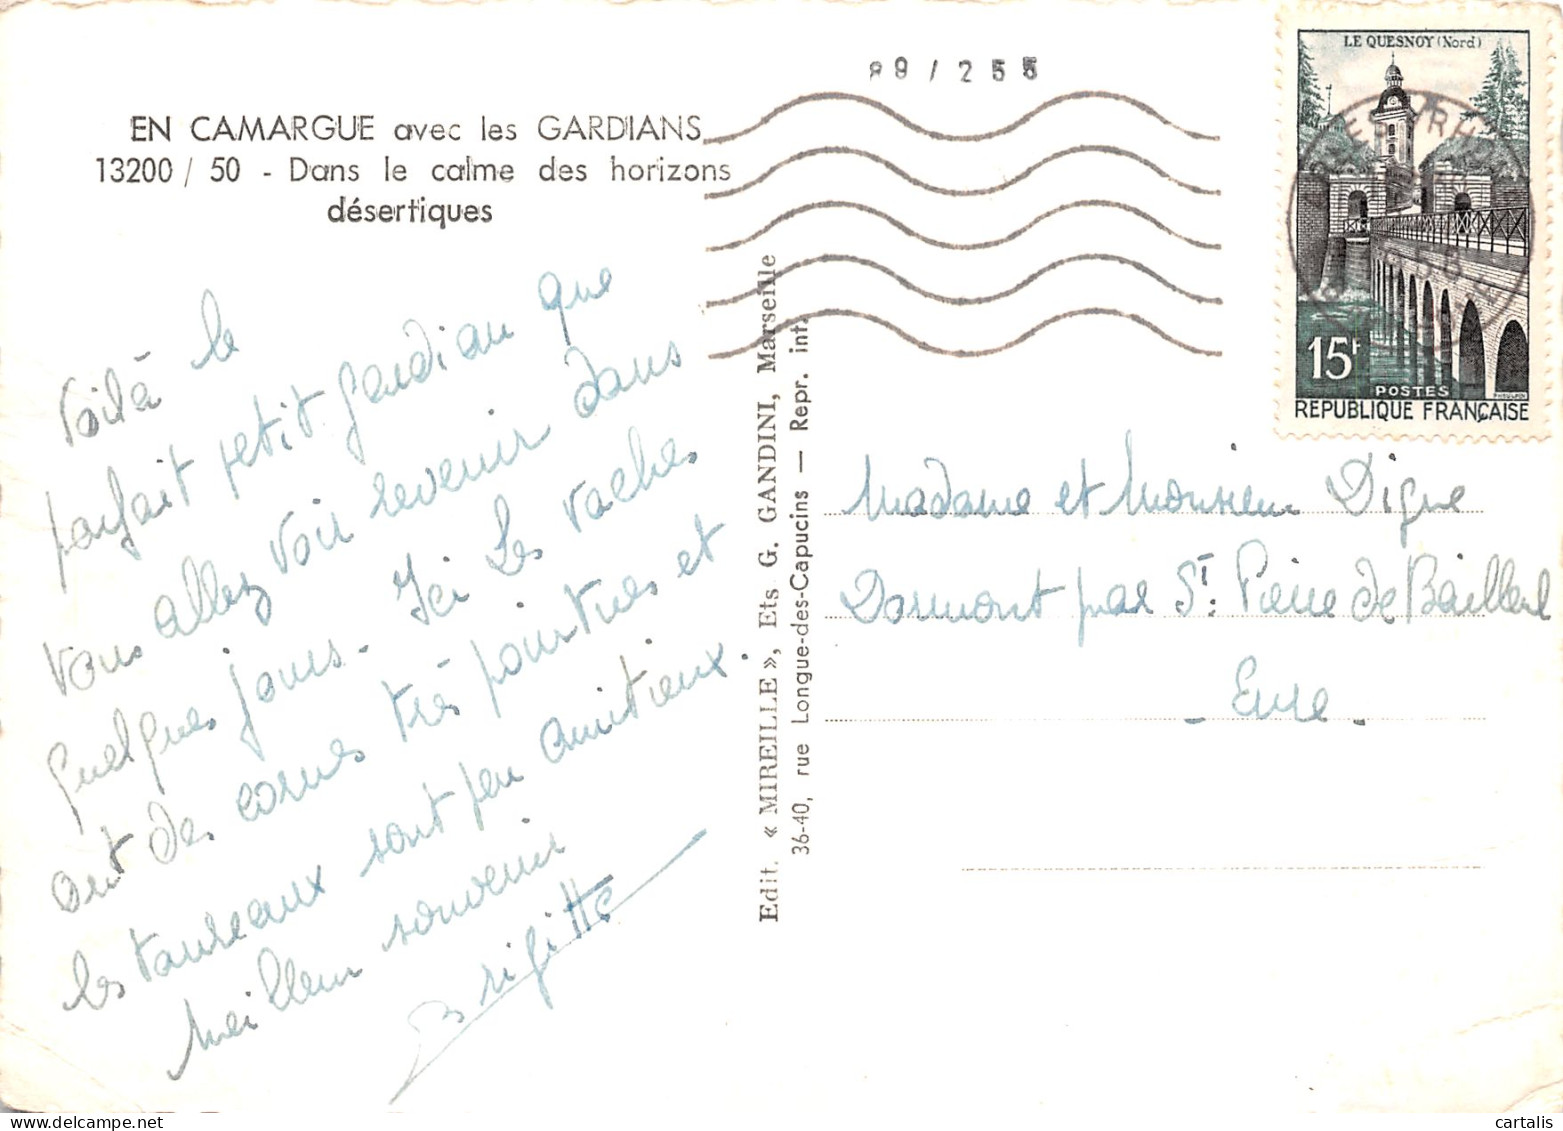 EN CAMARGUE avec les GARDIANS
13200 / 50 - Dans le calme des horizons
désertiques
Voilà le
parfait petit gardian que
vous allez voir revenir dans
quelques jours. Ici les vaches
ont des cornes très pointues et
les taureaux sont peu amitieux.
Meilleur souvenir
Brigitte
Edit. « MIREILLE », Ets G. GANDINI, Marseille
36-40, rue Longue-des-Capucins — Repr. int.
89/255
LE QUESNOY (Nord)
15F
POSTES
REPUBLIQUE FRANÇAISE
Madame et Monsieur Digue
Dormont par St. Pierre de Bailleul
- Eure -
cartalis